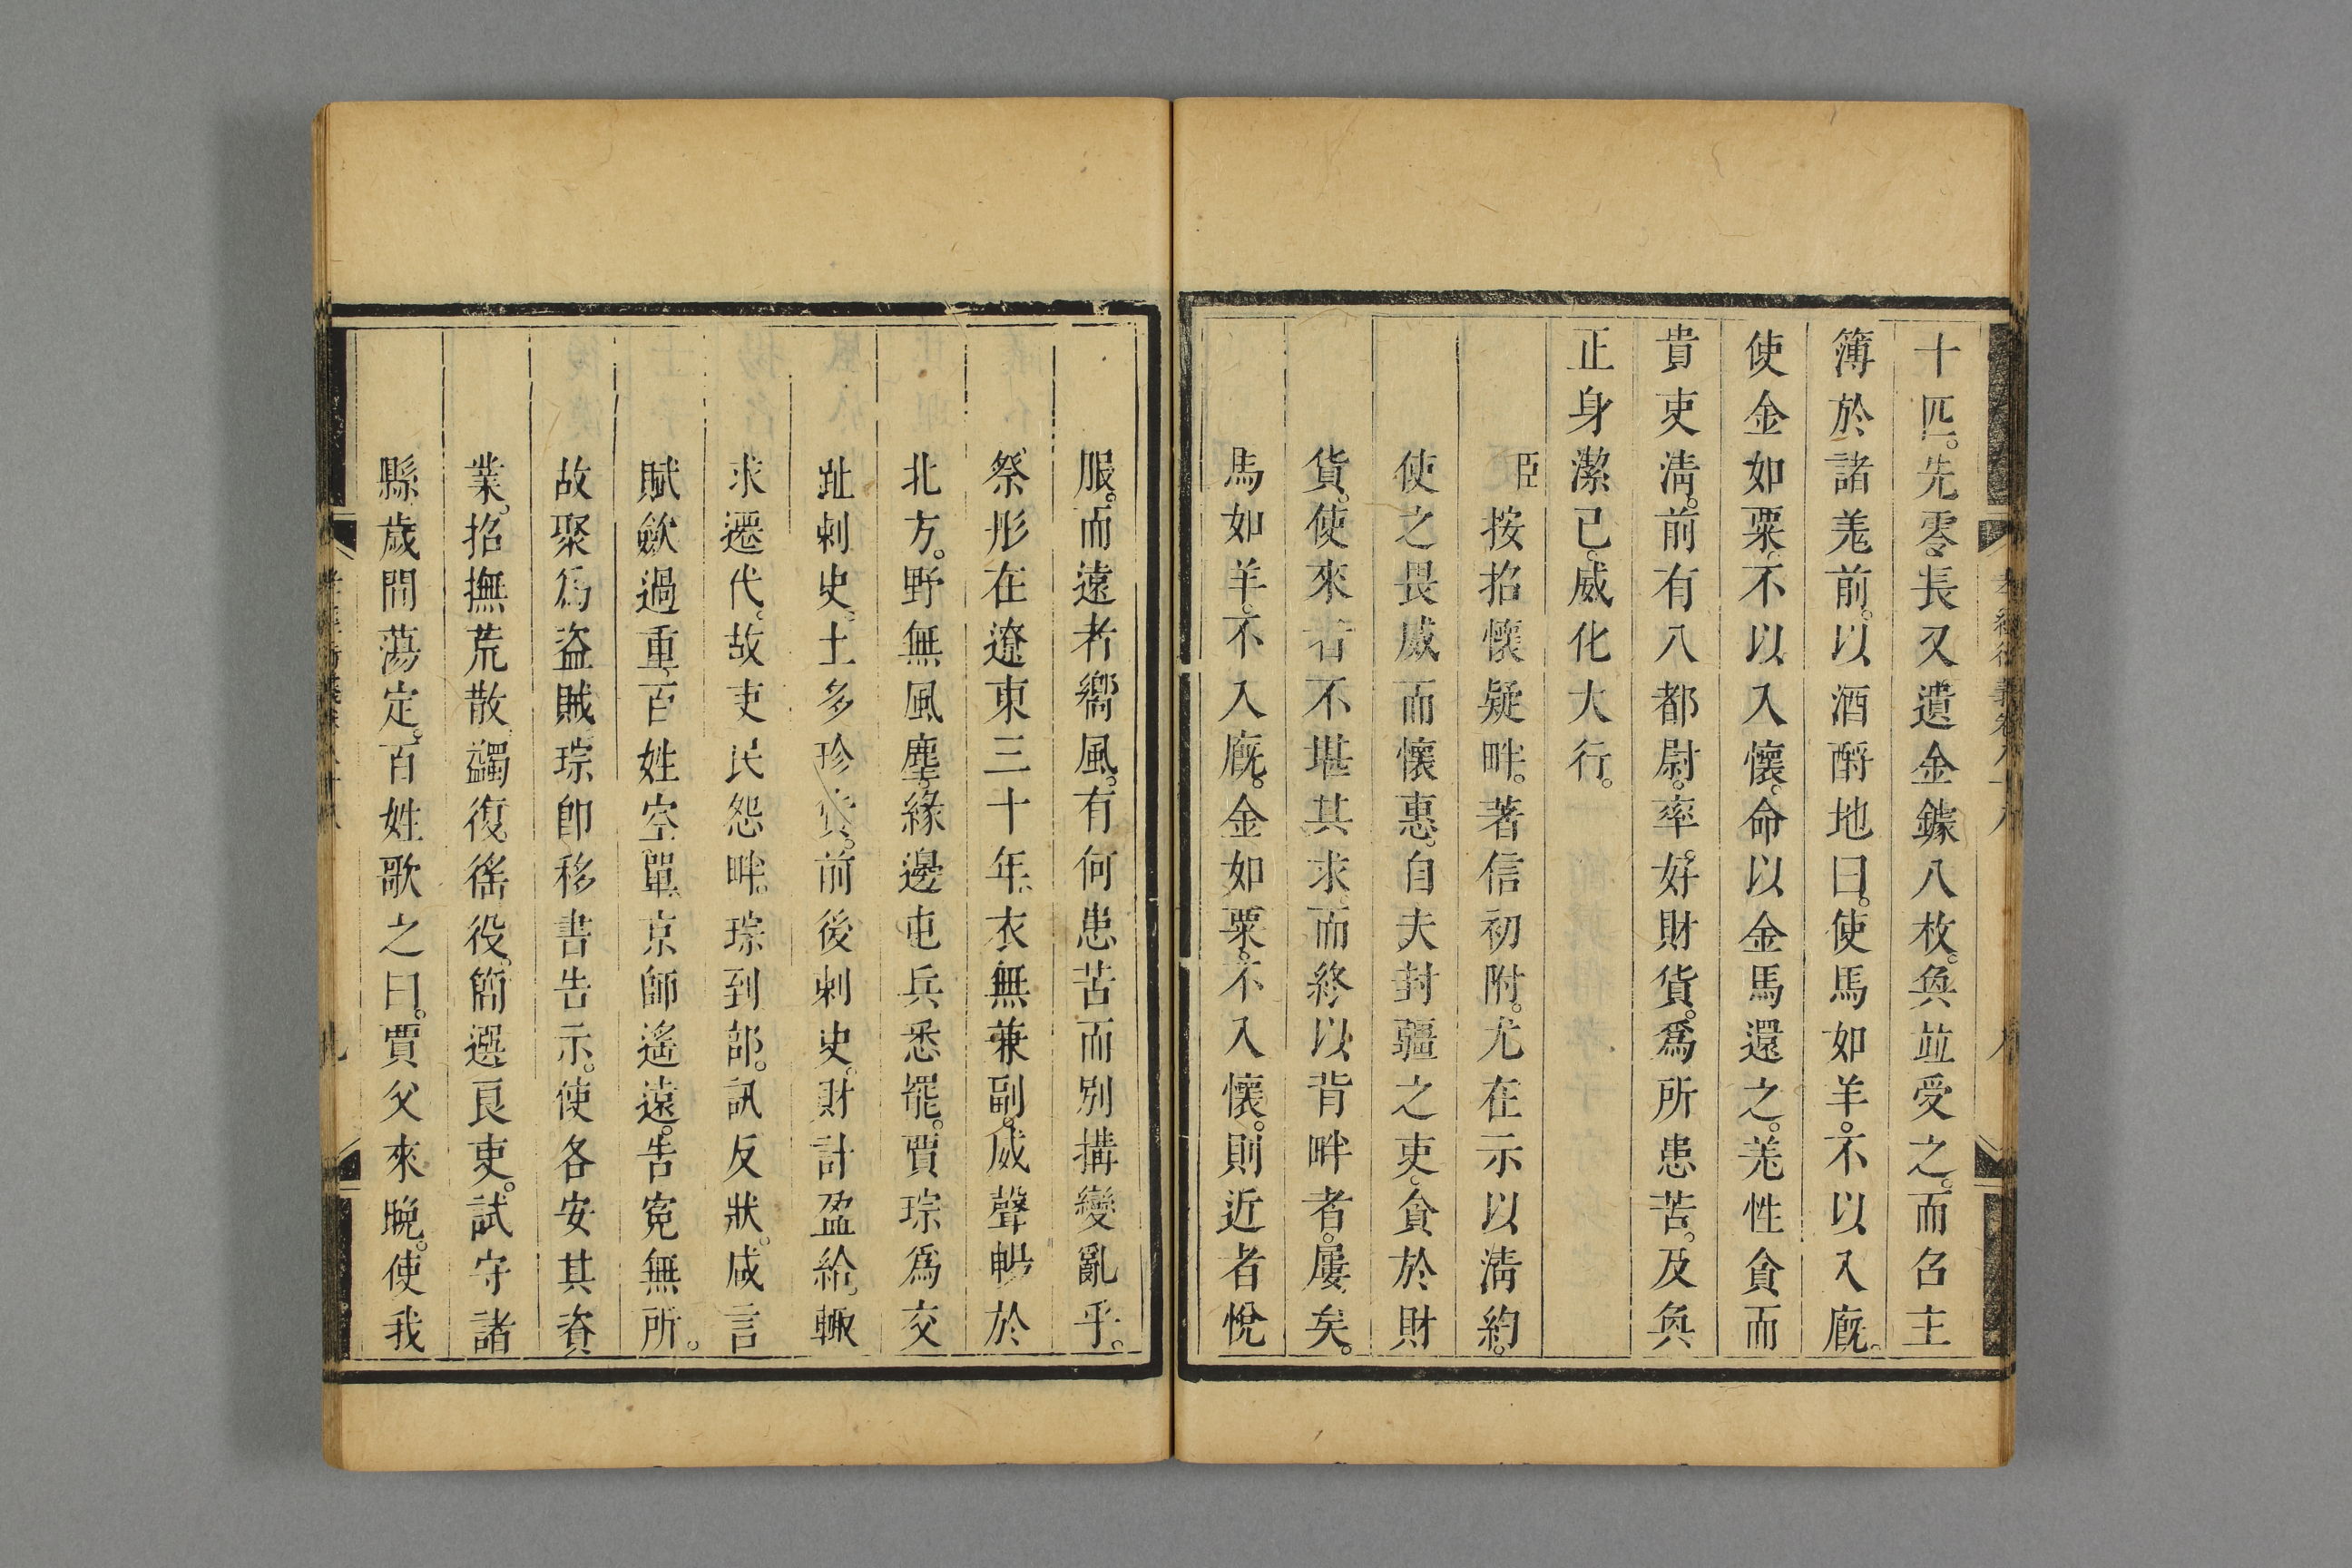 十匹。先零長又遺金鐻八枚。奐並受之。而召主
簿於諸羌前。以酒酹地曰。使馬如羊。不以入廐。
使金如粟。不以入懷。命以金馬還之。羌性貪而
貴吏淸。前有八都尉。率好財貨。爲所患苦。及奐
正身潔己。威化大行。
臣按招懷疑畔。著信初附。尤在示以淸約。
使之畏威而懷惠。自夫封疆之吏。貪於財
貨。使來者不堪其求。而終以背畔者。屢矣。
馬如羊。不入廐。金如粟。不入懷。則近者悅
服。而遠者嚮風。有何患苦而別搆變亂乎。
祭肜在遼東三十年。衣無兼副。威聲暢於
北方。野無風塵。緣邊屯兵悉罷。賈琮爲交
趾刺史。土多珍貨。前後刺史。財計盈給。輙
求遷代。故吏民怨畔。琮到部。訊反狀。咸言
賦歛過重。百姓空單。京師遙遠。告寃無所。
故聚爲盜賊。琮卽移書告示。使各安其資
業。招撫荒散。蠲復徭役。簡選良吏。試守諸
縣。歲間蕩定。百姓歌之曰。賈父來晚。使我